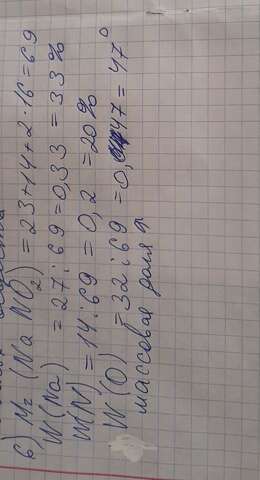 б) Mr (Na NO2) = 23+14+2·16=69
W (Na) = 27:69=0,33 = 33%
W(N) = 14:69 = 0,2 = 20%
W (O) = 32:69 = 0,47 = 47°
массовая доля